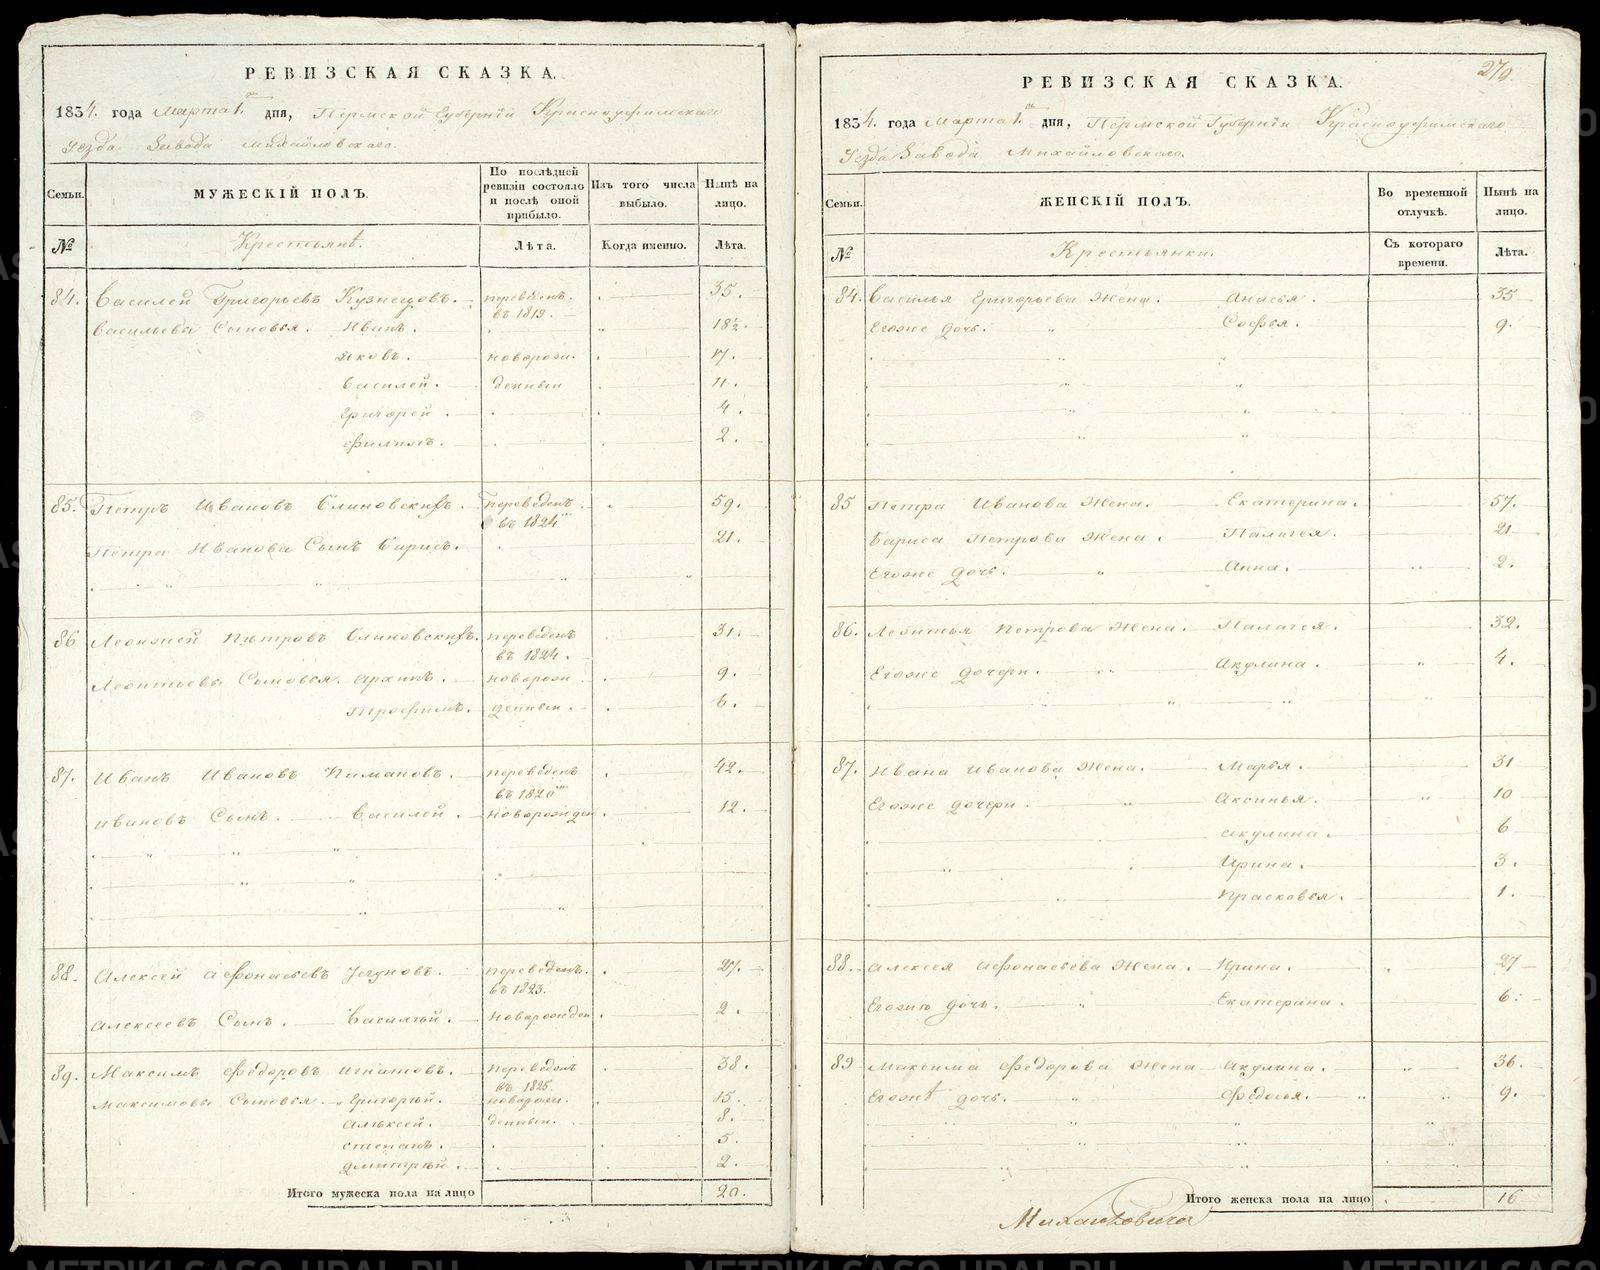 РЕВИЗСКАЯ СКАЗКА.
1834. года Марта 1. дня, Пермской Губернiи Красноуфимскаго
Уезда Завода Михайловскаго.
Семьи. МУЖЕСКIЙ ПОЛЪ. По послѣдней ревизiи состояло и послѣ оной прибыло. Изъ того числа выбыло. Нынѣ на лицо.
№ Крестьянѣ. Лѣта. Когда именно. Лѣта.
84. Василей Григорьевъ Кузнецовъ. переведенъ въ 1819. 35.
Васильевы Сыновья. Иванъ. 18½
Яковъ. новорож- 17.
Василей. денныи 11.
Григорей. 4.
Филипъ. 2.
85. Петръ Ивановъ переведенъ въ 1824 59.
Петра Иванова Сынъ Борисъ. 21.
86 Леонтей Петровъ переведенъ въ 1824. 31.
Леонтьевы Сыновья. Архипъ. новорож 9.
Трофимъ. денныи. 6.
87. Иванъ Ивановъ переведенъ въ 1820 42.
Ивановъ Сынъ. Василей. новорожден 12.
88. Алексей Афонасьевъ переведенъ. въ 1823. 27.
Алексеевъ Сынъ. Василѣй. новорожден 2.
89. Максимъ Федоровъ Игнатовъ. переведенъ въ 1825. 38.
Максимовы Сыновья. Григорѣй. новорож. 15.
Алѣксей. денныи. 8.
Степанъ. 5.
Дмитрѣй. 2.
Итого мужеска пола на лицо 20.
270.
РЕВИЗСКАЯ СКАЗКА.
1834. года Марта 1. дня, Пермской Губернiи Красноуфимскаго
Уезда Завода Михайловскаго.
Семьи. ЖЕНСКIЙ ПОЛЪ. Во временной отлучкѣ. Нынѣ на лицо.
№ Крестьянки. Съ котораго времени. Лѣта.
84. Василья Григорьева Жена. Анисья. 35
Егоже дочь. Софья. 9.
85 Петра Иванова Жена. Екатерина. 57.
Бориса Петрова Жена. Палагея. 21
Егоже дочь. Анна. 2.
86. Леонтья Петрова Жена. Палагея. 32.
Егоже дочери. Акулина. 4.
87. Ивана Иванова Жена. Марья. 31
Егоже дочери. Аксинья. 10
Акулина. 6
Ирина. 3.
Прасковья. 1.
88. Алексея Афонасьева Жена. Ирина. 27
Егожѣ дочь. Екатерина. 6.
89 Максима Федорова Жена Акулина. 36.
Егожѣ дочь. Федосья. 9.
Итого женска пола на лицо 16
METRIKI.GASO-URAL.RU
METRIKI.GASO-URAL.RU